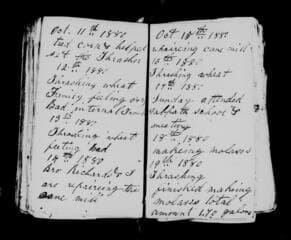 Oct. 11th 1880
tied corn & helped
set the Thrasher
12th 1880
Thrashing wheat
Family feeling very
Bad
13th 1880
Thrashing wheat
feeling bad
14th 1880
Bro Richards & I
are repairing the
cane mill
Oct 15th 1880
repairing cane mill
16th 1880
Thrashing wheat
17th 1880
Sunday attended
Sabbath school &
meeting
18th 1880
makeing molases
19th 1880
Thrashing
finished makeing
molases total
amount 170 galons